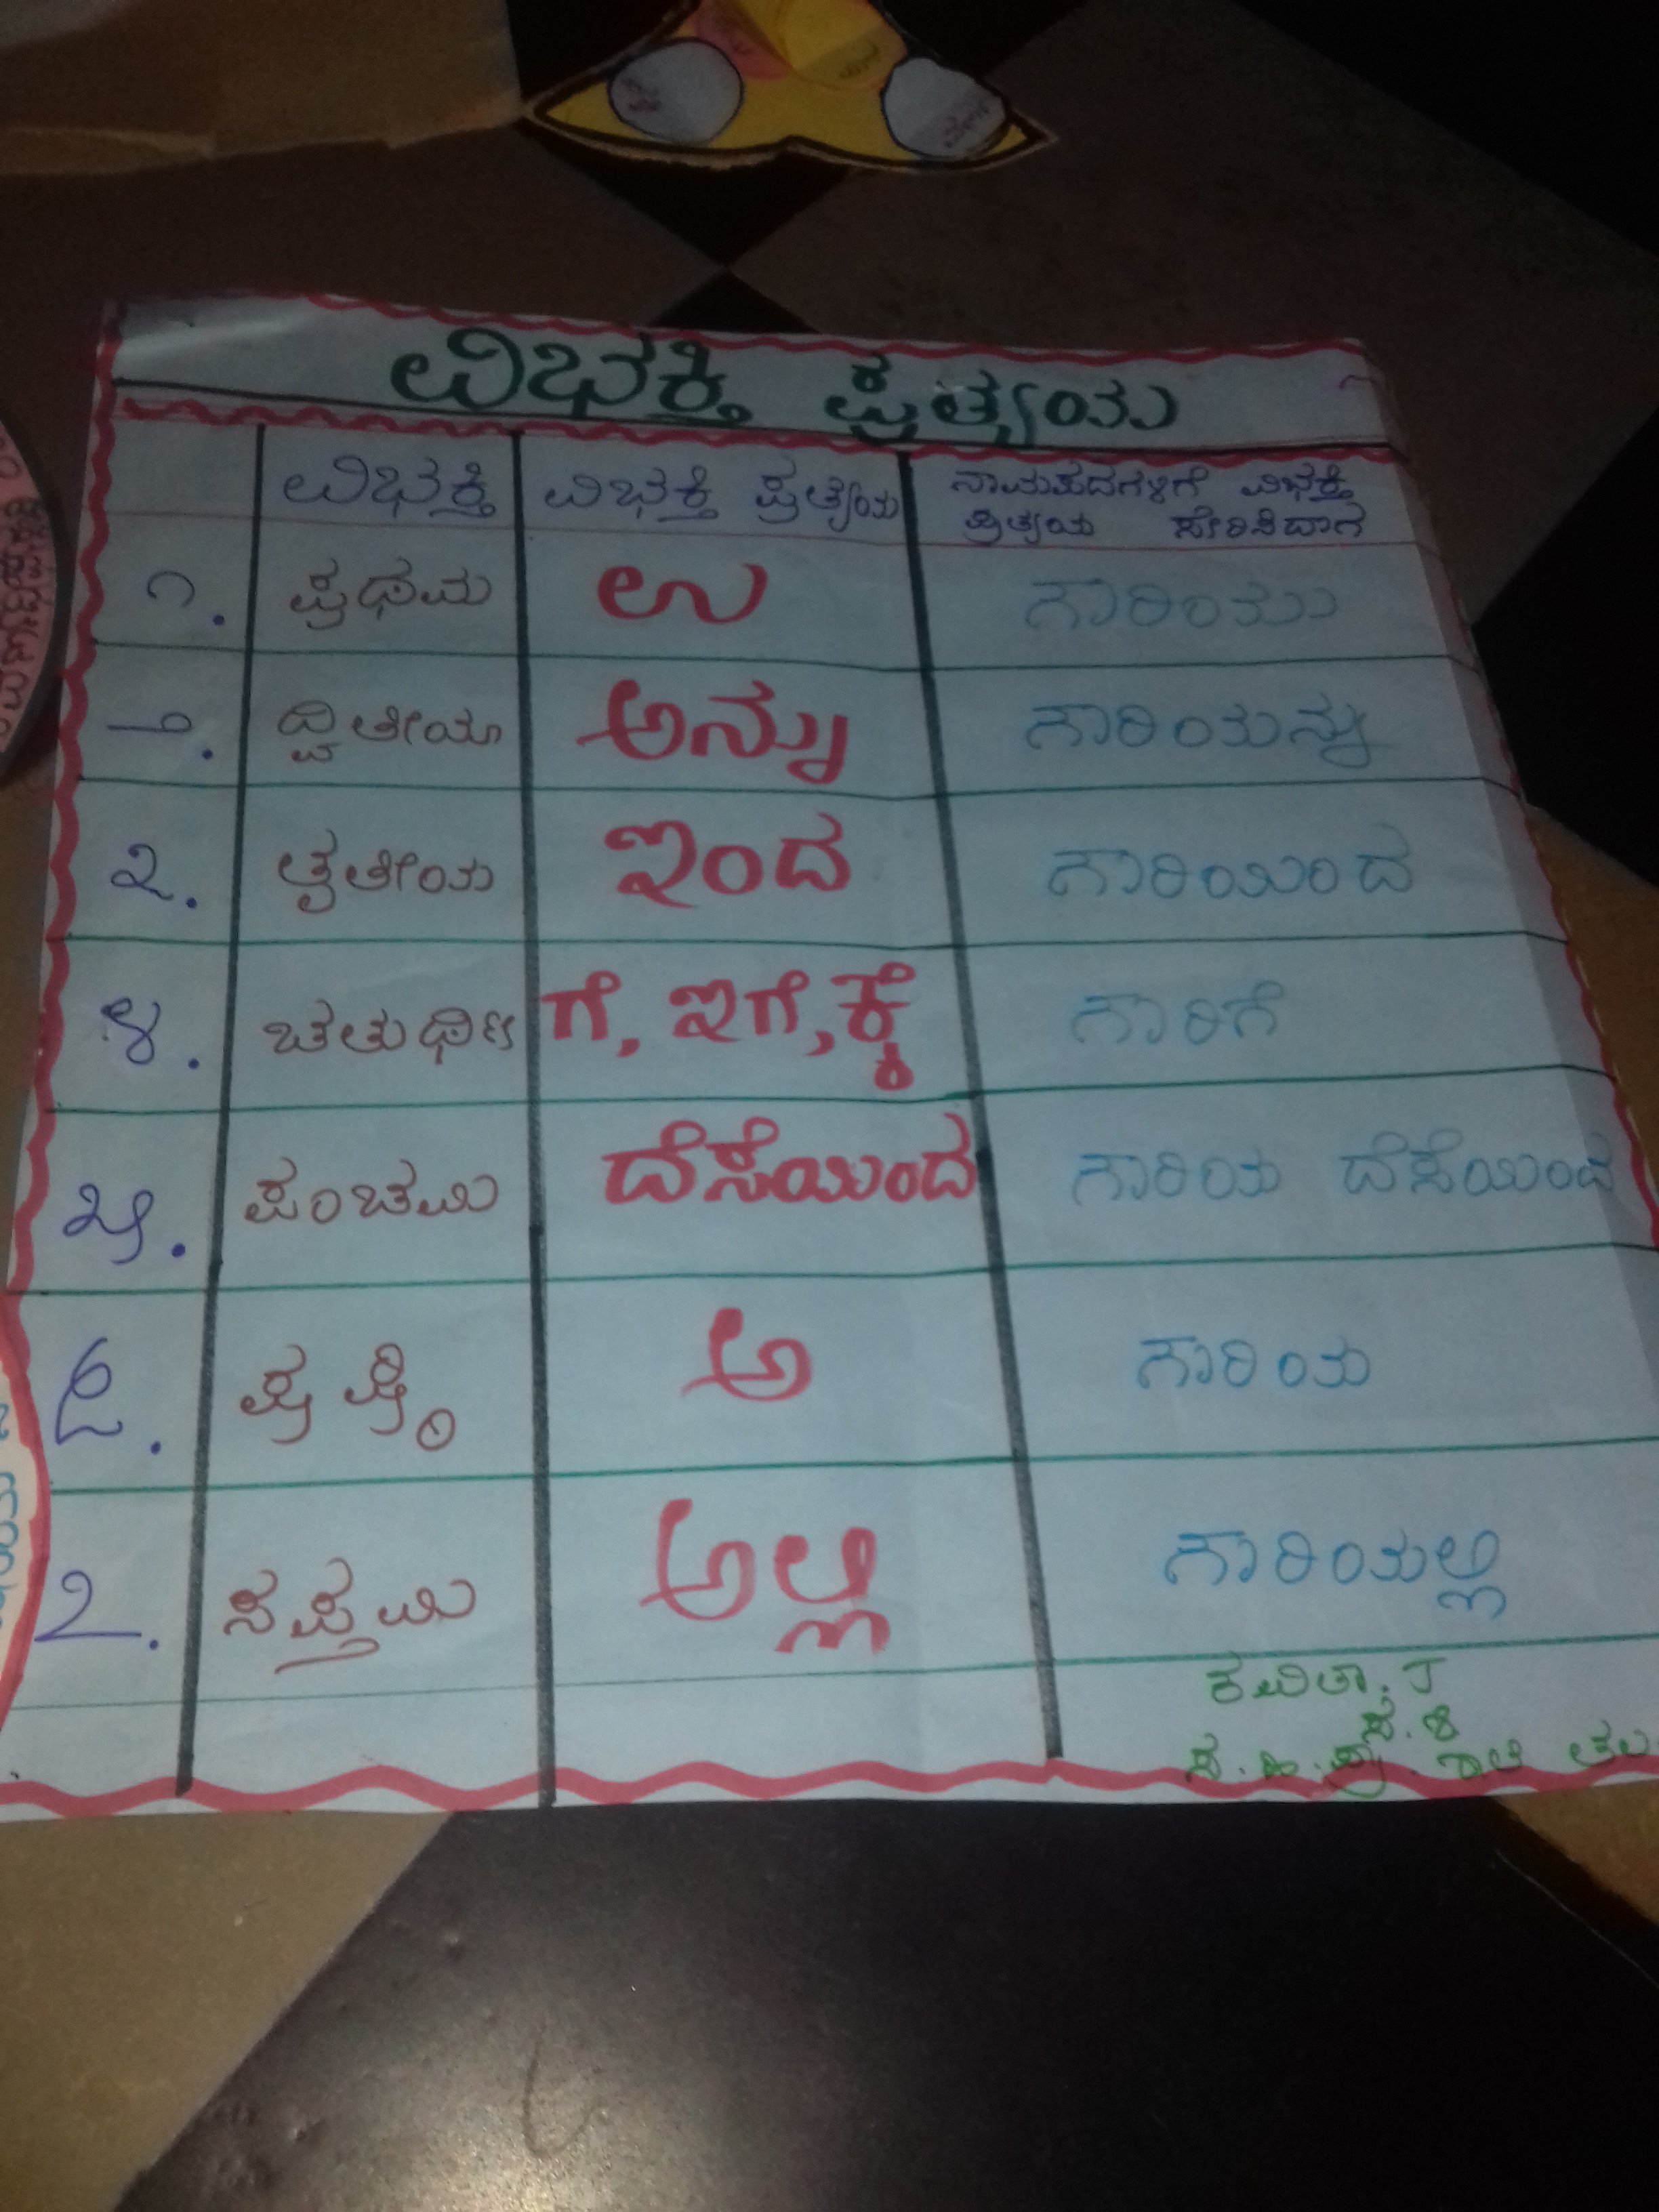 ವಿಭಕ್ತಿ ಪ್ರತ್ಯಯ
ವಿಭಕ್ತಿ ವಿಭಕ್ತಿ ಪ್ರತ್ಯಯ ನಾಮಪದಗಳಿಗೆ ವಿಭಕ್ತಿ
ಪ್ರತ್ಯಯ ಸೇರಿಸಿದಾಗ
೧. ಪ್ರಥಮ ಉ ಗಾರಿಯು
೨. ದ್ವಿತೀಯಾ ಅನ್ನು ಗಾರಿಯನ್ನು
೩. ತೃತೀಯ ಇಂದ ಗಾರಿಯಿಂದ
೪. ಚತುರ್ಥಿ ಗೆ, ಇಗೆ, ಕ್ಕೆ ಗಾರಿಗೆ
೫. ಪಂಚಮಿ ದೆಸೆಯಿಂದ ಗಾರಿಯ ದೆಸೆಯಿಂದ
೬. ಅ ಗಾರಿಯ
೭. ಸಪ್ತಮಿ ಅಲ್ಲಿ ಗಾರಿಯಲ್ಲಿ
ಕವಿತಾ. J